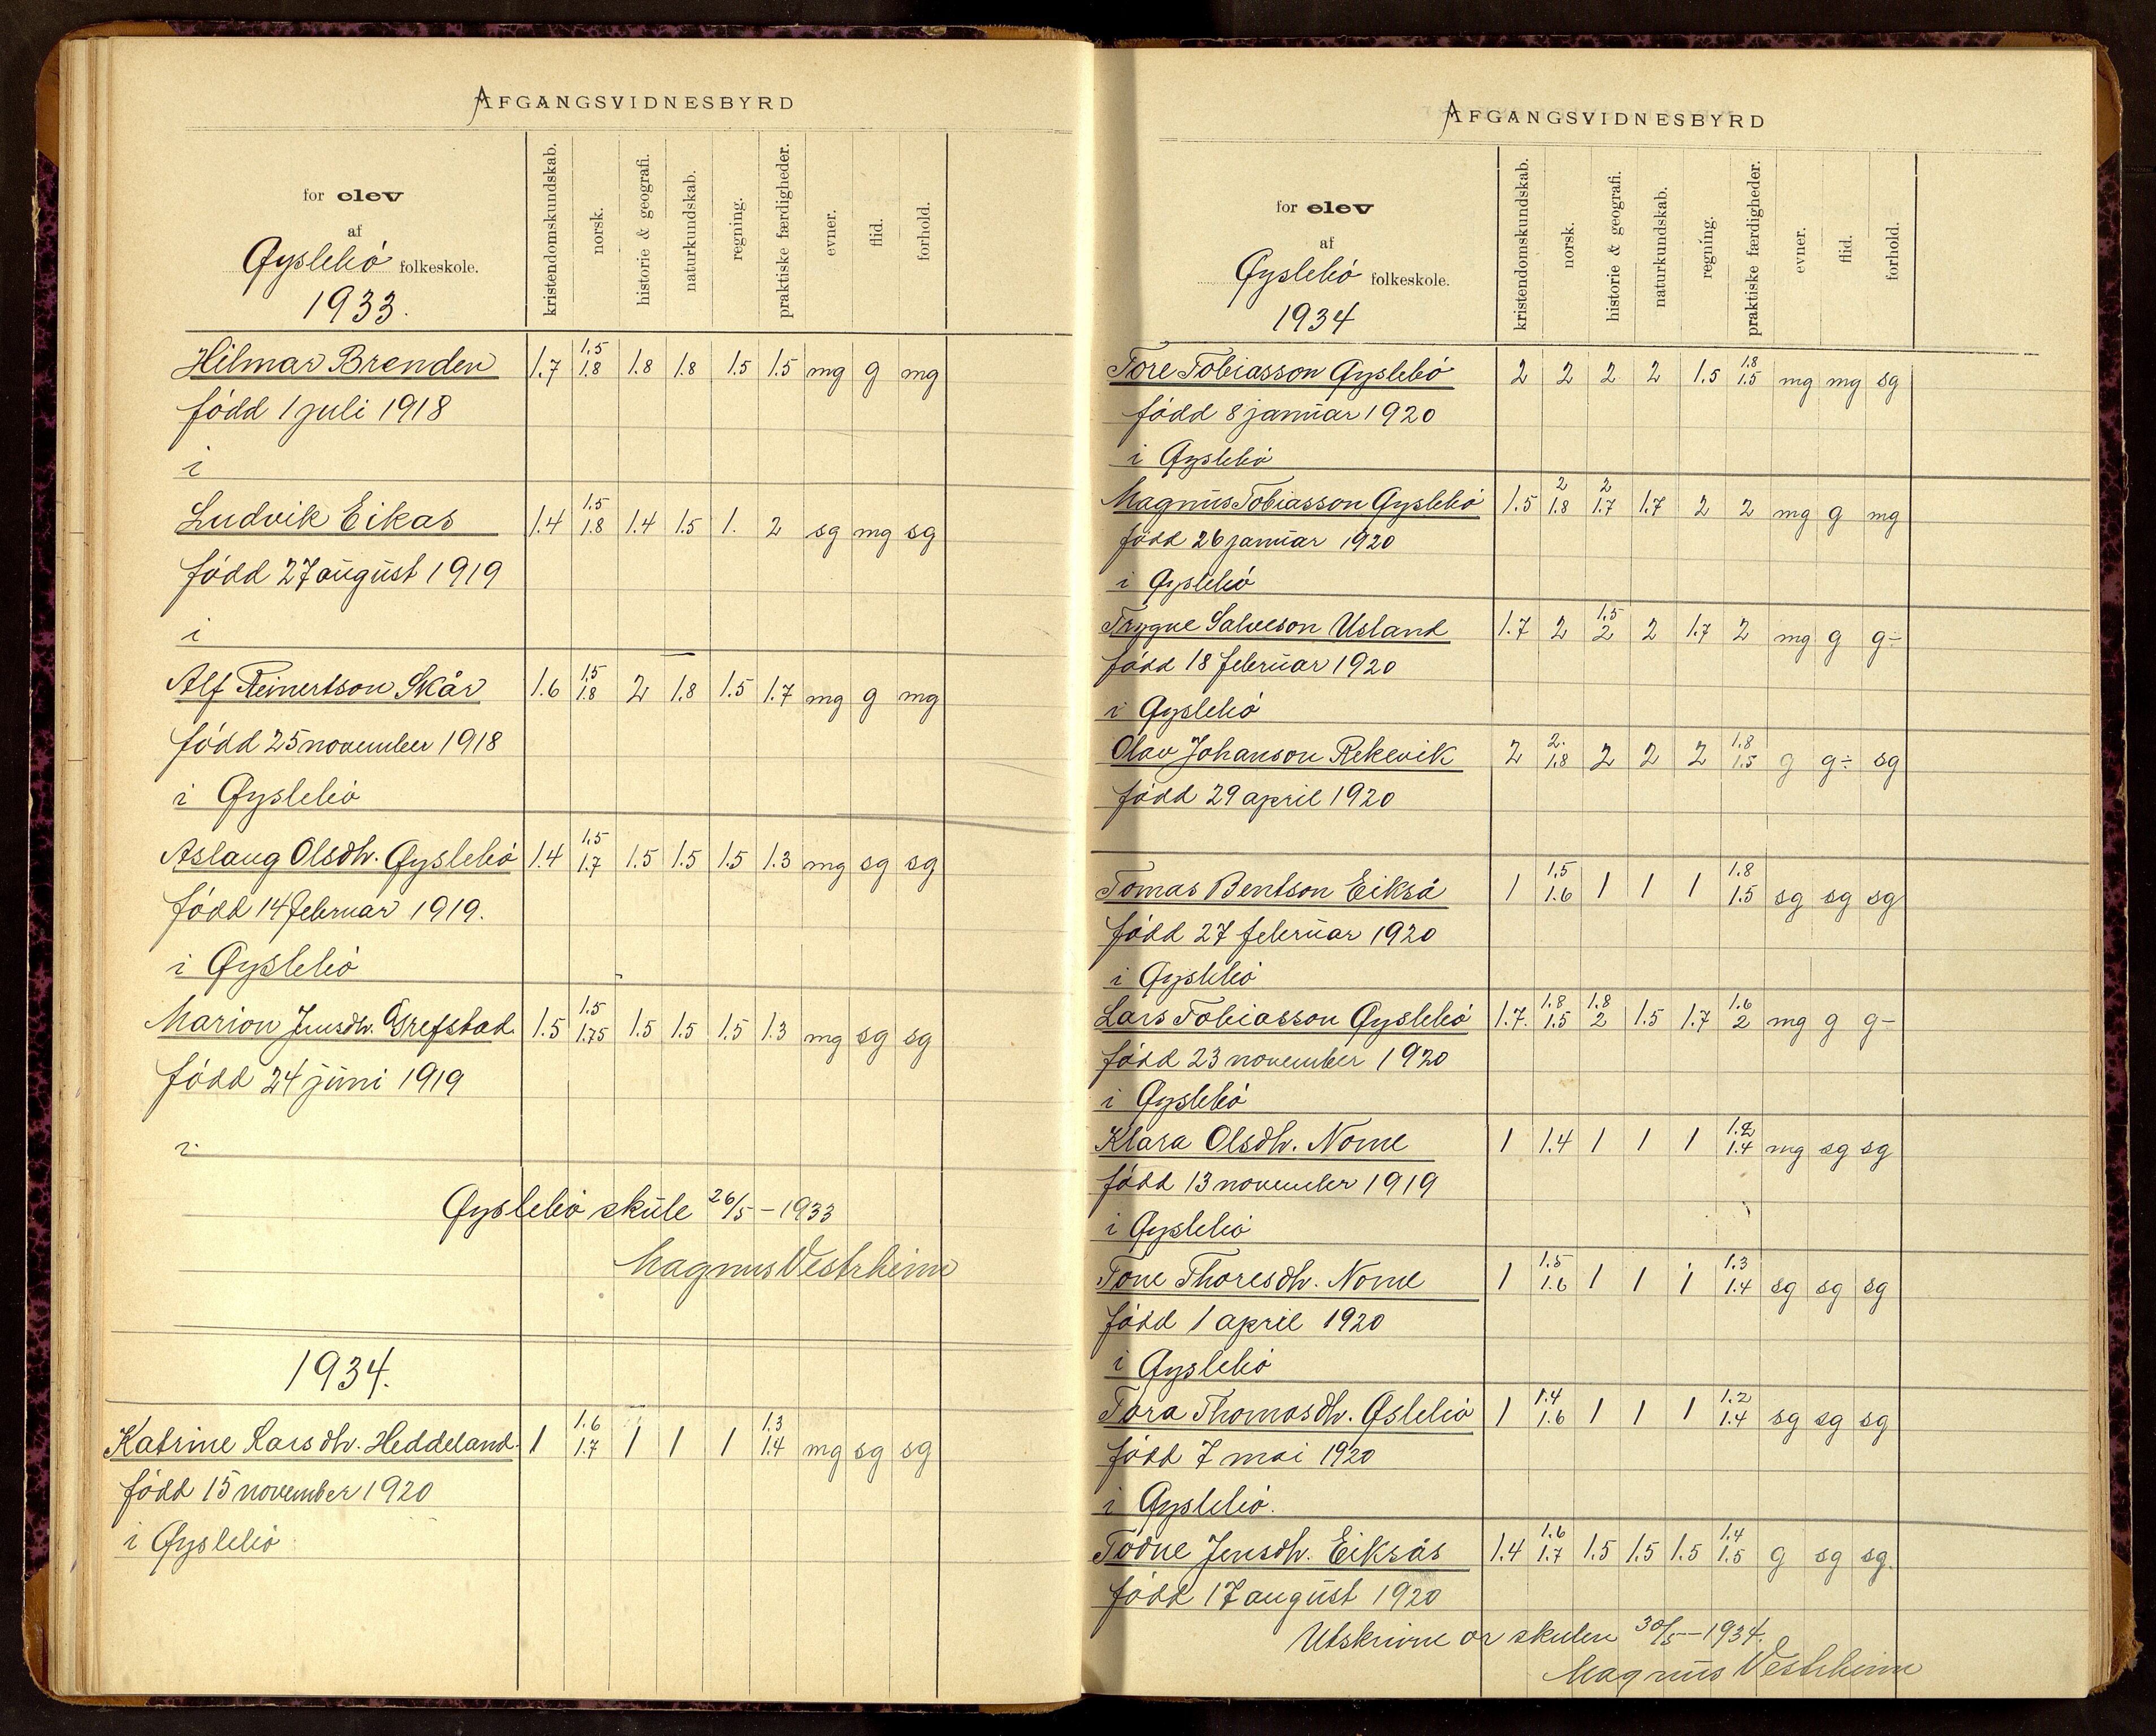 AFGANGSVIDNESBYRD
for elev
af
Øyslebö folkeskole.
1933.
kristendomskundskab.
norsk.
historie & geografi.
naturkundskab.
regning.
praktiske færdigheder.
evner.
flid.
forhold.
Hilmar Brenden 1.7 1.5 1.8 1.8 1.8 1.5 1.5 mg g mg
född 1 juli 1918
i
Ludvik Eikås 1.4 1.5 1.8 1.4 1.5 1. 2 sg mg sg
född 27 august 1919
i
Alf Reinertson Skår 1.6 1.5 1.8 2 1.8 1.5 1.7 mg g mg
född 25 november 1918
i Øyslebö
Aslaug Olsdtr. Øyslebö 1.4 1.5 1.7 1.5 1.5 1.5 1.3 mg sg sg
född 14 februar 1919.
i Øyslebö
Marion Jensdtr. Grefstad. 1.5 1.5 1.75 1.5 1.5 1.5 1.3 mg sg sg
född 24 juni 1919
i
Øyslebö skule 26/5 - 1933
Magnus Vestrheim
1934.
Katrine Larsdtr. Heddeland. 1 1.6 1.7 1 1 1 1.3 1.4 mg sg sg
född 15 november 1920
i Øyslebö
AFGANGSVIDNESBYRD
for elev
af
Øyslebö folkeskole.
1934
kristendomskundskab.
norsk.
historie & geografi.
naturkundskab.
regning.
praktiske færdigheder.
evner.
flid.
forhold.
Tore Tobiasson Øyslebö 2 2 2 2 1.5 1.8 1.5 mg mg sg
född 8 januar 1920
i Øyslebö
Magnus Tobiasson Øyslebö 1.5 2 1.8 2 1.7 1.7 2 2 mg g mg
född 26 januar 1920
i Øyslebö
Trygve Salveson Usland 1.7 2 1.5 2 2 1.7 2 mg g g÷
född 18 februar 1920
i Øyslebö
Olav Johanson Rekevik 2 2. 1.8 2 2 2 1.8 1.5 g g÷ sg
född 29 april 1920
Tomas Bentson Eikså 1 1.5 1.6 1 1 1 1.8 1.5 sg sg sg
född 27 februar 1920
i Øyslebö
Lars Tobiasson Øyslebö 1.7. 1.8 1.5 1.8 2 1.5 1.7 1.6 2 mg g g-
född 23 november 1920
i Øyslebö
Klara Olsdtr. Nome 1 1.4 1 1 1 1.2 1.4 mg sg sg
född 13 november 1919
i Øyslebö
Tone Thoresdtr. Nome 1 1.5 1.6 1 1 1 1.3 1.4 sg sg sg
född 1 april 1920
i Øyslebö
Tora Thomasdtr. Øslebö 1 1.4 1.6 1 1 1 1.2 1.4 sg sg sg
född 7 mai 1920
i Øyslebö.
Todne Jensdtr. Eiksås 1.4 1.6 1.7 1.5 1.5 1.5 1.4 1.5 g sg sg.
född 17 august 1920
Utskrivne or skulen 30/5 - 1934.
Magnus Vestrheim